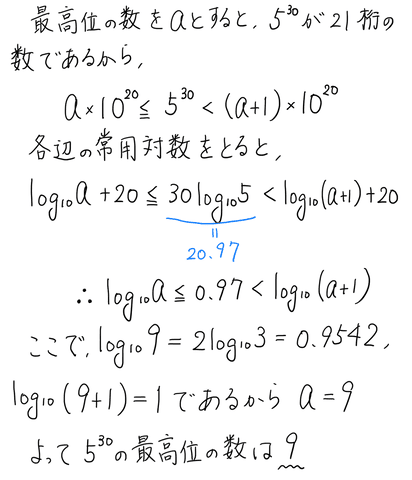 最高位の数をaとすると, 5³⁰が21桁の
数であるから,
a×10²⁰ ≦ 5³⁰ < (a+1)×10²⁰
各辺の常用対数をとると,
log₁₀a+20 ≦ 30log₁₀5 < log₁₀(a+1)+20
=
20.97
∴ log₁₀a ≦ 0.97 < log₁₀(a+1)
ここで, log₁₀9 = 2log₁₀3 = 0.9542,
log₁₀(9+1)=1 であるから a=9
よって 5³⁰の最高位の数は 9